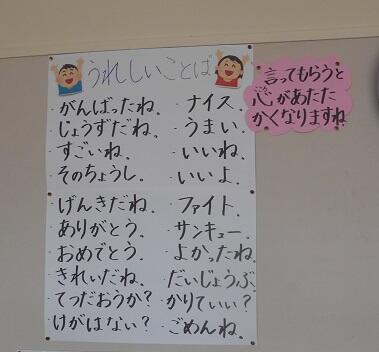 うれしいことば
・がんばったね。
・じょうずだね。
・すごいね。
・そのちょうし。
・げんきだね。
・ありがとう。
・おめでとう。
・きれいだね。
・てつだおうか?
・けがはない?
・ナイス。
・うまい。
・いいね。
・いいよ。
・ファイト。
・サンキュー。
・よかったね。
・だいじょうぶ
・かりていい?
・ごめんね。
言ってもらうと
心があたた
かくなりますね